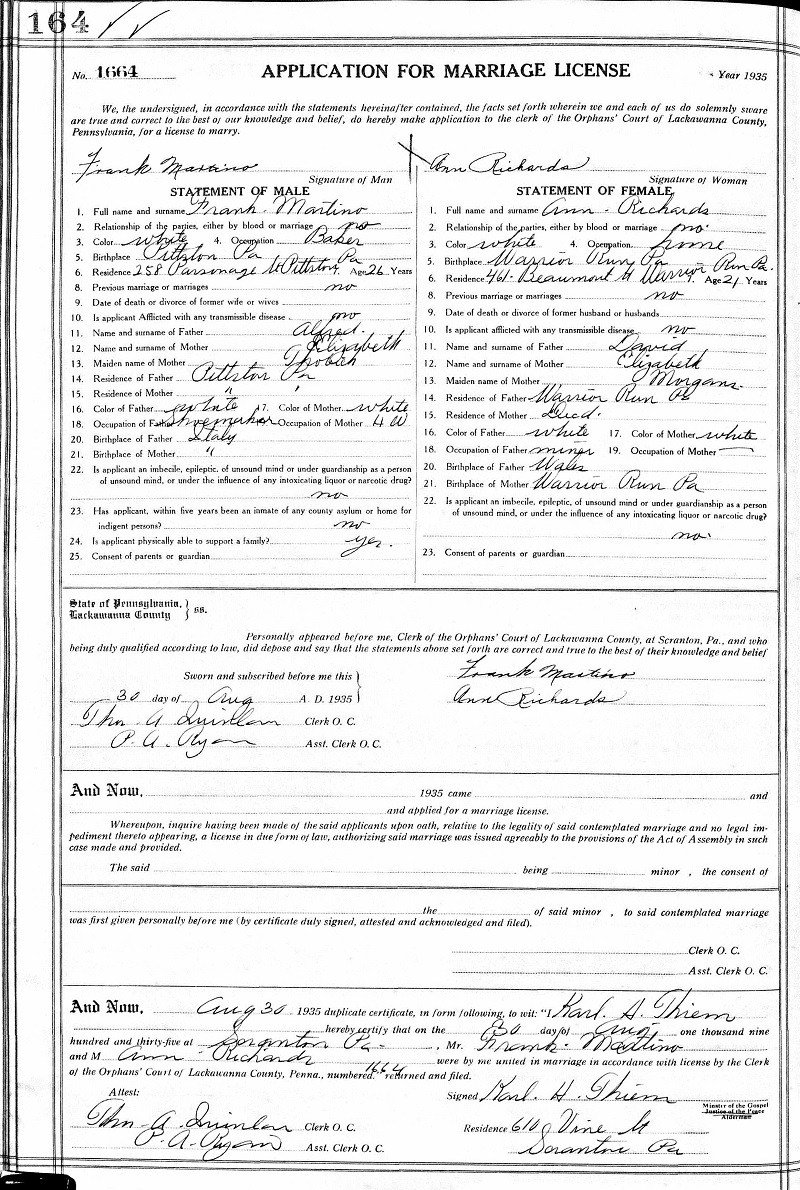 164
No. 1664 APPLICATION FOR MARRIAGE LICENSE Year 1935
We, the undersigned, in accordance with the statements hereinafter contained, the facts set forth wherein we and each of us do solemnly sware
are true and correct to the best of our knowledge and belief, do hereby make application to the clerk of the Orphans' Court of Lackawanna County,
Pennsylvania, for a license to marry.
Frank Martino
Signature of Man
STATEMENT OF MALE
1. Full name and surname Frank Martino
2. Relationship of the parties, either by blood or marriage no
3. Color white 4. Occupation Baker
5. Birthplace Pittston Pa Pa
6. Residence 258 Parsonage St Pittston 7. Age 26 Years
8. Previous marriage or marriages no
9. Date of death or divorce of former wife or wives
10. Is applicant Afflicted with any transmissible disease no
11. Name and surname of Father Alfred
12. Name and surname of Mother Elizabeth
13. Maiden name of Mother
14. Residence of Father Pittston Pa
15. Residence of Mother " "
16. Color of Father white 17. Color of Mother white
18. Occupation of Father Shoemaker 19. Occupation of Mother H W
20. Birthplace of Father Italy
21. Birthplace of Mother "
22. Is applicant an imbecile, epileptic, of unsound mind or under guardianship as a person
of unsound mind, or under the influence of any intoxicating liquor or narcotic drug?
no
23. Has applicant, within five years been an inmate of any county asylum or home for
indigent persons? no
24. Is applicant physically able to support a family? yes.
25. Consent of parents or guardian
Ann Richards
Signature of Woman
STATEMENT OF FEMALE
1. Full name and surname Ann Richards
2. Relationship of the parties, either by blood or marriage no
3. Color white 4. Occupation home
5. Birthplace Warrior Run Pa
6. Residence 461 Beaumont St Warrior Run Pa. 7. Age 21 Years
8. Previous marriage or marriages no
9. Date of death or divorce of former husband or husbands
10. Is applicant afflicted with any transmissible disease no
11. Name and surname of Father David
12. Name and surname of Mother Elizabeth
13. Maiden name of Mother Morgans
14. Residence of Father Warrior Run Pa
15. Residence of Mother Decd.
16. Color of Father white 17. Color of Mother white
18. Occupation of Father miner 19. Occupation of Mother —
20. Birthplace of Father Wales
21. Birthplace of Mother Warrior Run Pa
22. Is applicant an imbecile, epileptic, of unsound mind or under guardianship as a person
of unsound mind, or under the influence of any intoxicating liquor or narcotic drug?
no.
23. Consent of parents or guardian
State of Pennsylvania,
Lackawanna County } ss.
Personally appeared before me, Clerk of the Orphans' Court of Lackawanna County, at Scranton, Pa., and who
being duly qualified according to law, did depose and say that the statements above set forth are correct and true to the best of their knowledge and belief
Sworn and subscribed before me this
30 day of Aug A. D. 1935
Thos A Quinlan Clerk O. C.
P. A. Ryan Asst. Clerk O. C.
Frank Martino
Ann Richards
And Now, 1935 came and
and applied for a marriage license.
Whereupon, inquire having been made of the said applicants upon oath, relative to the legality of said contemplated marriage and no legal im-
pediment thereto appearing, a license in due form of law, authorizing said marriage was issued agreeably to the provisions of the Act of Assembly in such
case made and provided.
The said being minor , the consent of
the of said minor , to said contemplated marriage
was first given personally before me (by certificate duly signed, attested and acknowledged and filed).
Clerk O. C.
Asst. Clerk O. C.
And Now, Aug 30 1935 duplicate certificate, in form following, to wit: "I Karl H. Thiem
hereby certify that on the 30 day of Aug one thousand nine
hundred and thirty-five at Scranton Pa , Mr. Frank Martino
and M Ann Richards were by me united in marriage in accordance with license by the Clerk
of the Orphans' Court of Lackawanna County, Penna., numbered 1664 returned and filed.
Attest:
Thos. A. Quinlan Clerk O. C.
P. A. Ryan Asst. Clerk O. C.
Signed Karl H. Thiem
Minster of the Gospel
Justice of the Peace
Alderman
Residence 610 Vine St
Scranton Pa